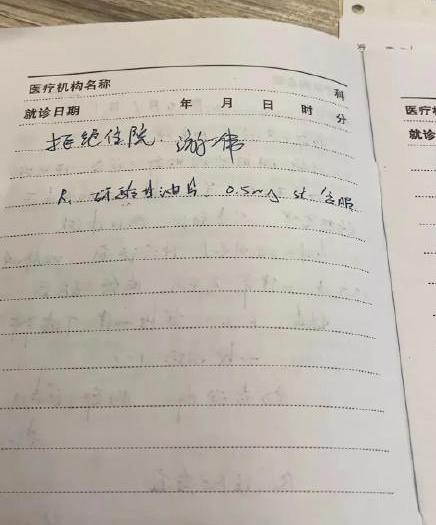 医疗机构名称 科
就诊日期 年 月 日 时 分
拒绝住院
R. 硝酸甘油片 0.5mg st 含服
医疗
就诊